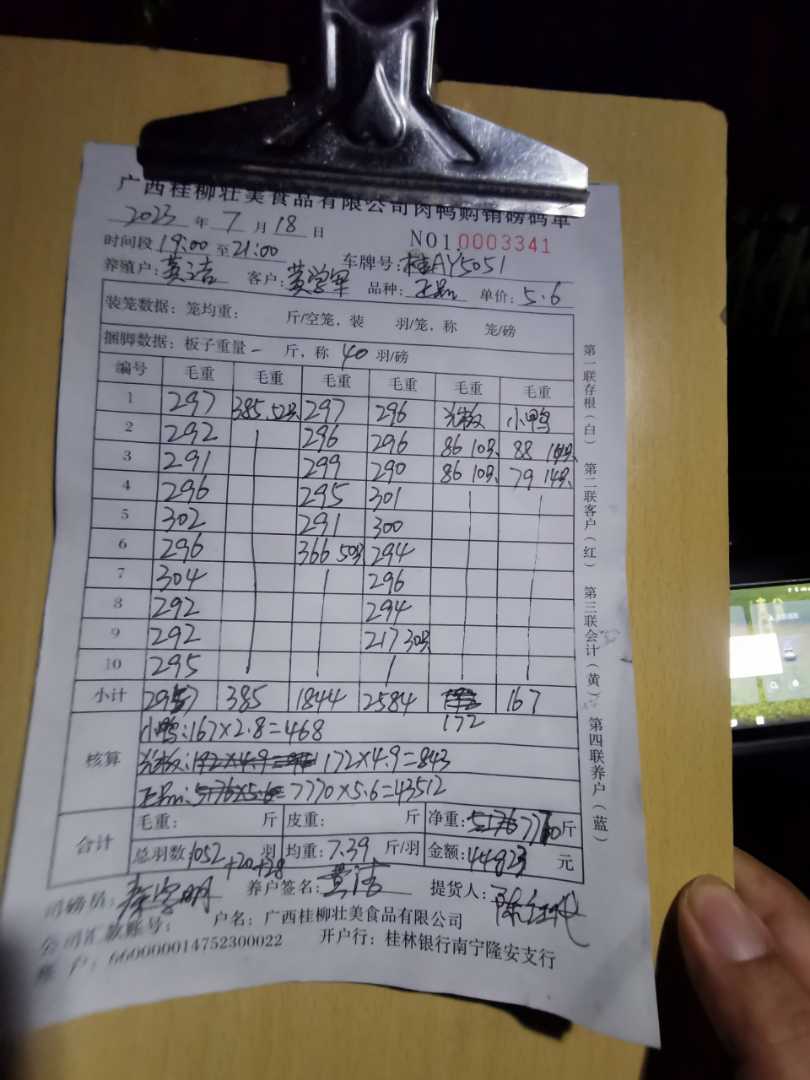 广西桂柳壮美食品有限公司肉鸭购销磅码单
2023 年 7 月 18 日 NO1.0003341
时间段 19:00 至 21:00 车牌号: 桂AY5051
养殖户: 黄洁 客户: 黄学军 品种: 正品 单价: 5.6
装笼数据: 笼均重: 斤/空笼, 装 羽/笼, 称 笼/磅
捆脚数据: 板子重量 一 斤, 称 40 羽/磅
编号 毛重 毛重 毛重 毛重 毛重 毛重
1 297 385 52只 297 296 光板 小鸭
2 292 296 296 86 10只 88 14只
3 291 299 290 86 10只 79 14只
4 296 295 301
5 302 291 300
6 296 366 50只 294
7 304 296
8 292 294
9 292 217 30只
10 295
小计 2957 385 1844 2584 172 167
核算 小鸭: 167×2.8=468
光板: 172×4.9=843
正品: 5176×5.6= 7770×5.6=43512
合计 毛重: 斤 皮重: 斤 净重: 5176 7770 斤
总羽数: 1052 羽 均重: 7.39 斤/羽 金额: 44823 元
+20+28
司磅员: 养户签名: 黄洁 提货人:
公司汇款账号: 户名: 广西桂柳壮美食品有限公司
账户: 660000014752300022 开户行: 桂林银行南宁隆安支行
第一联存根(白) 第二联客户(红) 第三联会计(黄) 第四联养户(蓝)